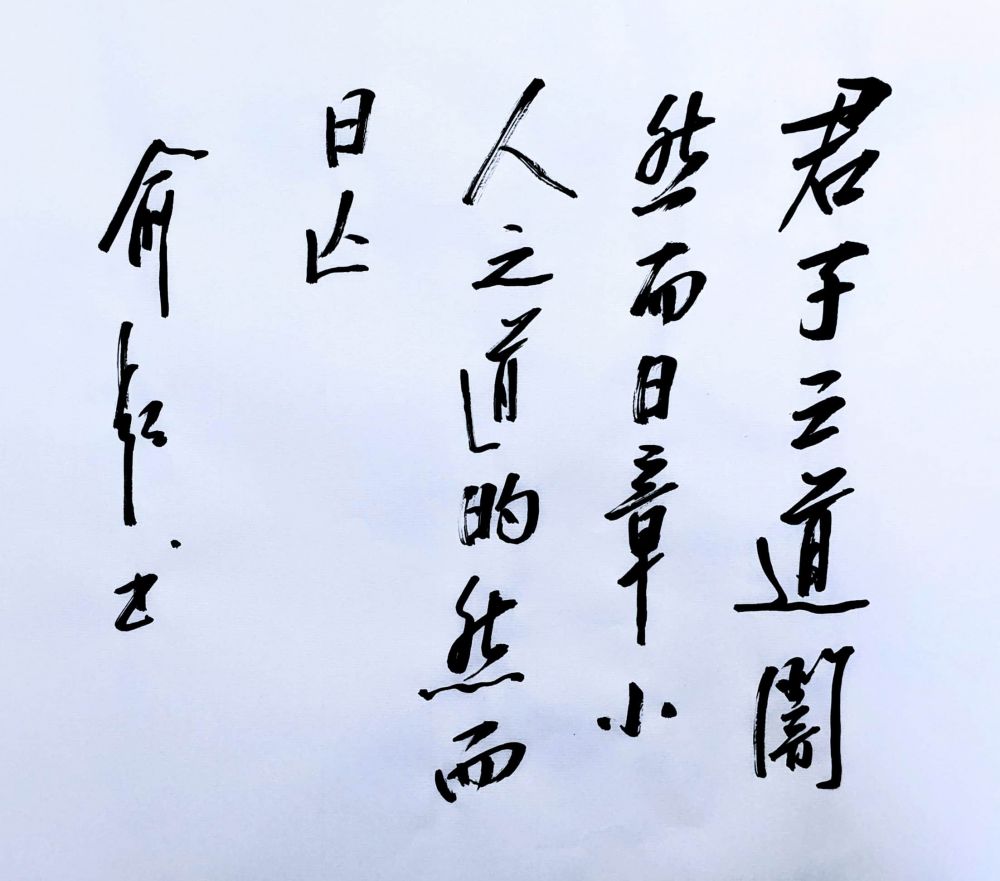 君子之道闇
然而日章小
人之道的然而
日亾
俞 书